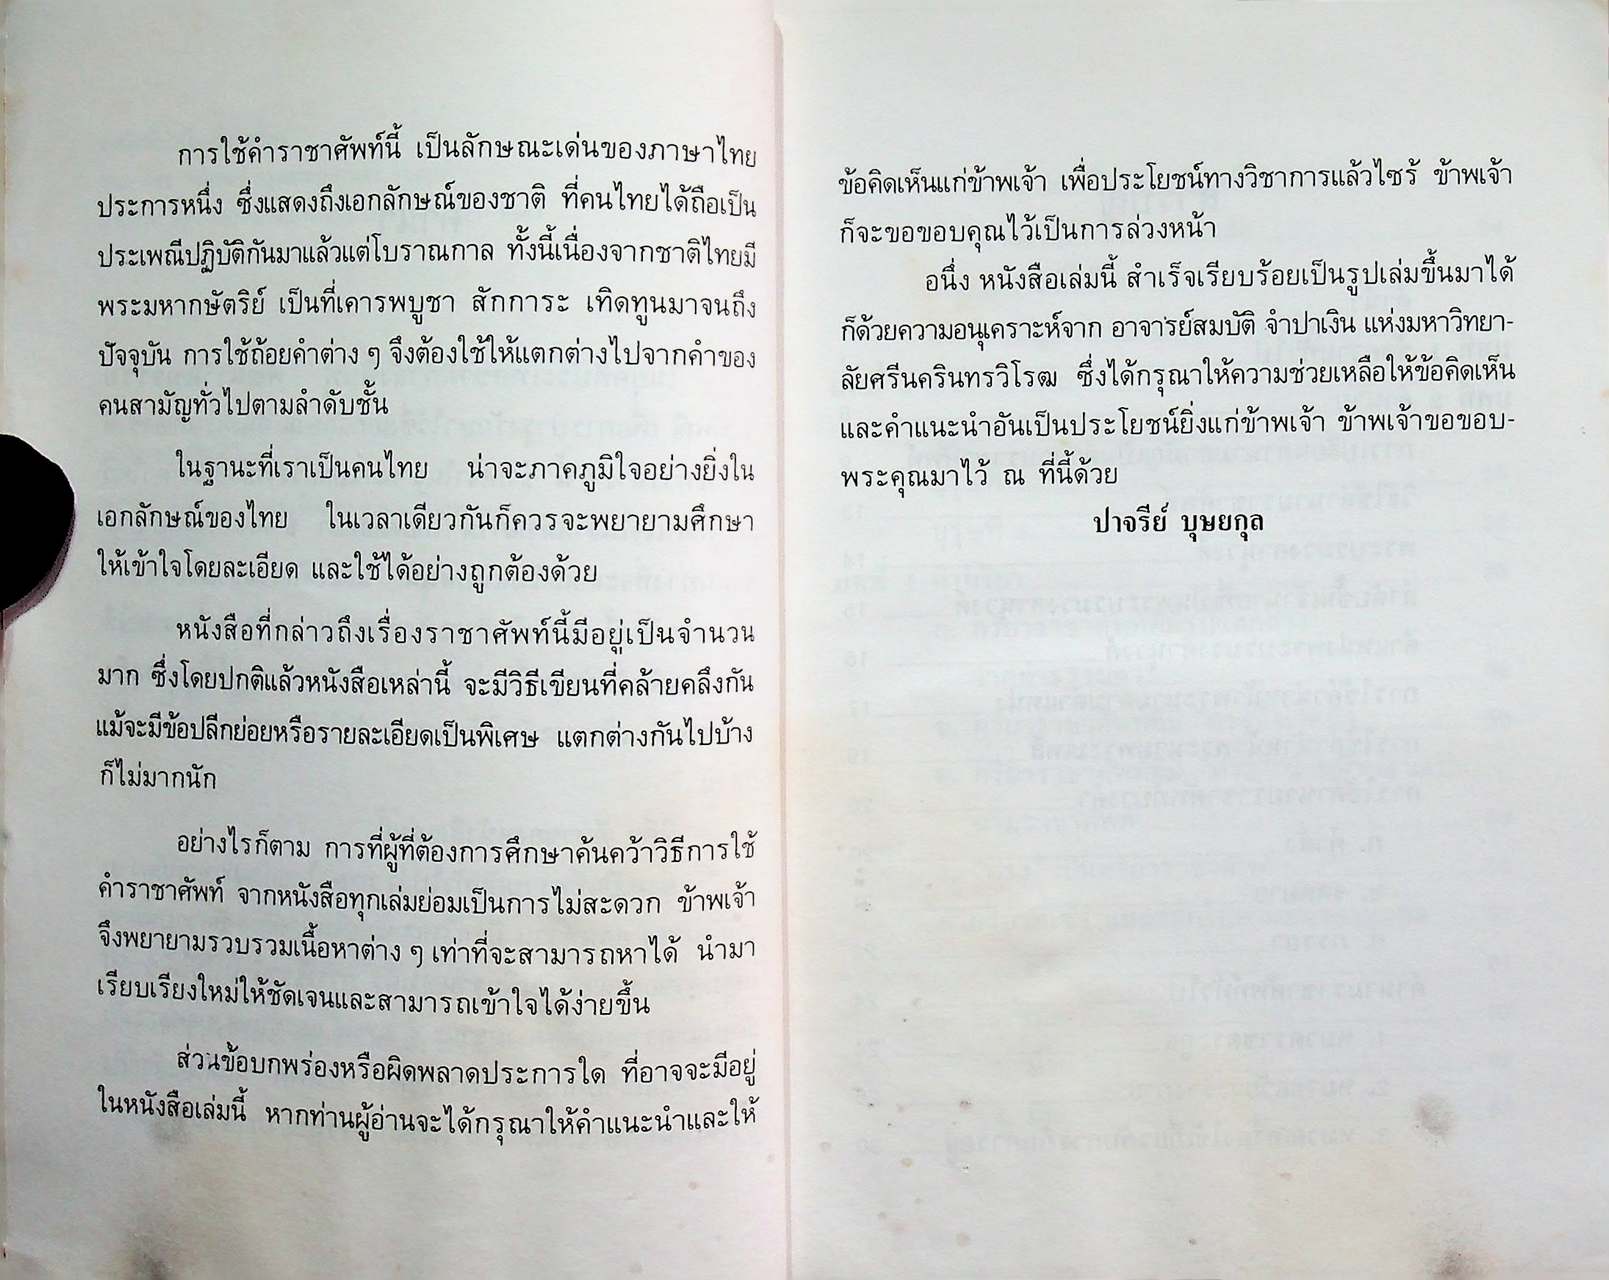 การใช้คำราชาศัพท์นี้ เป็นลักษณะเด่นของภาษาไทย
ประการหนึ่ง ซึ่งแสดงถึงเอกลักษณ์ของชาติ ที่คนไทยได้ถือเป็น
ประเพณีปฏิบัติกันมาแล้วแต่โบราณกาล ทั้งนี้เนื่องจากชาติไทยมี
พระมหากษัตริย์ เป็นที่เคารพบูชา สักการะ เทิดทูนมาจนถึง
ปัจจุบัน การใช้ถ้อยคำต่าง ๆ จึงต้องใช้ให้แตกต่างไปจากคำของ
คนสามัญทั่วไปตามลำดับชั้น
ในฐานะที่เราเป็นคนไทย น่าจะภาคภูมิใจอย่างยิ่งใน
เอกลักษณ์ของไทย ในเวลาเดียวกันก็ควรจะพยายามศึกษา
ให้เข้าใจโดยละเอียด และใช้ได้อย่างถูกต้องด้วย
หนังสือที่กล่าวถึงเรื่องราชาศัพท์นี้มีอยู่เป็นจำนวน
มาก ซึ่งโดยปกติแล้วหนังสือเหล่านี้ จะมีวิธีเขียนที่คล้ายคลึงกัน
แม้จะมีข้อปลีกย่อยหรือรายละเอียดเป็นพิเศษ แตกต่างกันไปบ้าง
ก็ไม่มากนัก
อย่างไรก็ตาม การที่ผู้ที่ต้องการศึกษาค้นคว้าวิธีการใช้
คำราชาศัพท์ จากหนังสือทุกเล่มย่อมเป็นการไม่สะดวก ข้าพเจ้า
จึงพยายามรวบรวมเนื้อหาต่าง ๆ เท่าที่จะสามารถหาได้ นำมา
เรียบเรียงใหม่ให้ชัดเจนและสามารถเข้าใจได้ง่ายขึ้น
ส่วนข้อบกพร่องหรือผิดพลาดประการใด ที่อาจจะมีอยู่
ในหนังสือเล่มนี้ หากท่านผู้อ่านจะได้กรุณาให้คำแนะนำและให้
ข้อคิดเห็นแก่ข้าพเจ้า เพื่อประโยชน์ทางวิชาการแล้วไซร้ ข้าพเจ้า
ก็จะขอขอบคุณไว้เป็นการล่วงหน้า
อนึ่ง หนังสือเล่มนี้ สำเร็จเรียบร้อยเป็นรูปเล่มขึ้นมาได้
ก็ด้วยความอนุเคราะห์จาก อาจารย์สมบัติ จำปาเงิน แห่งมหาวิทยา-
ลัยศรีนครินทรวิโรฒ ซึ่งได้กรุณาให้ความช่วยเหลือให้ข้อคิดเห็น
และคำแนะนำอันเป็นประโยชน์ยิ่งแก่ข้าพเจ้า ข้าพเจ้าขอขอบ-
พระคุณมาไว้ ณ ที่นี้ด้วย
ปาจรีย์ บุษยกุล